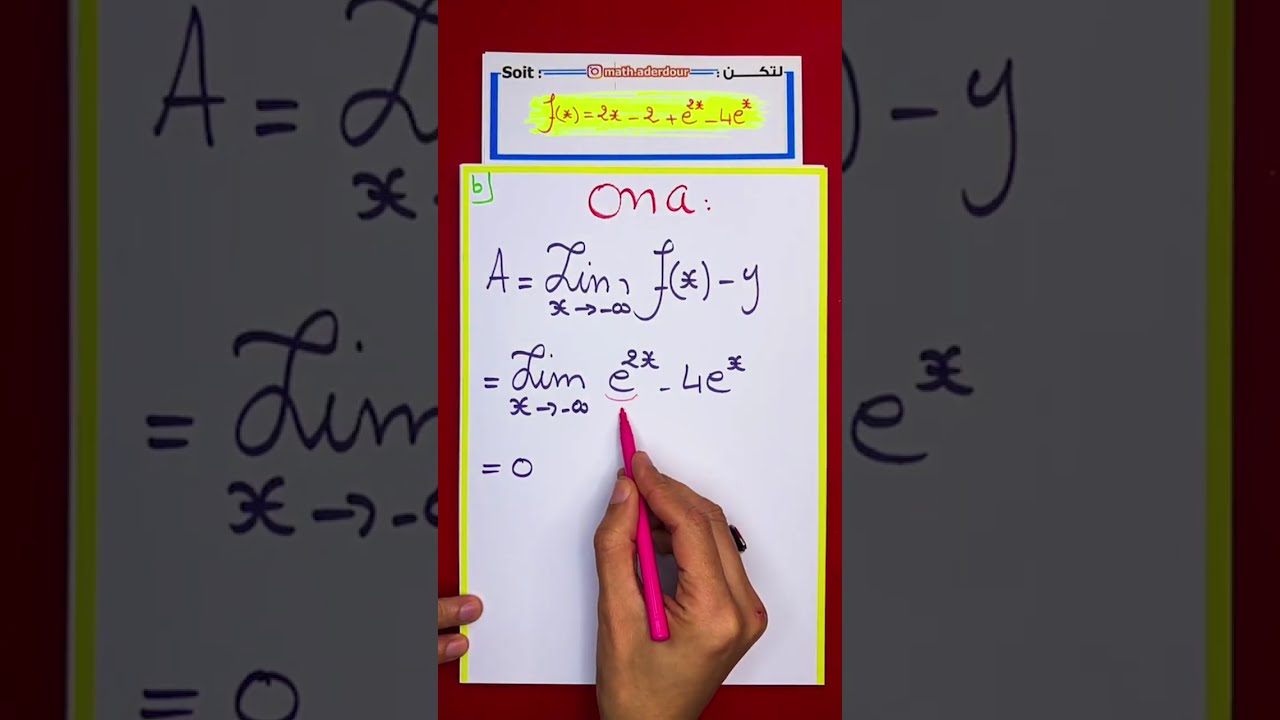 Soit : math.aderdour لتكن :
f(x) = 2x - 2 + e^{2x} - 4e^{x}
b]
On a :
A = Lim f(x) - y
x → -∞
= Lim e^{2x} - 4e^{x}
x → -∞
= 0